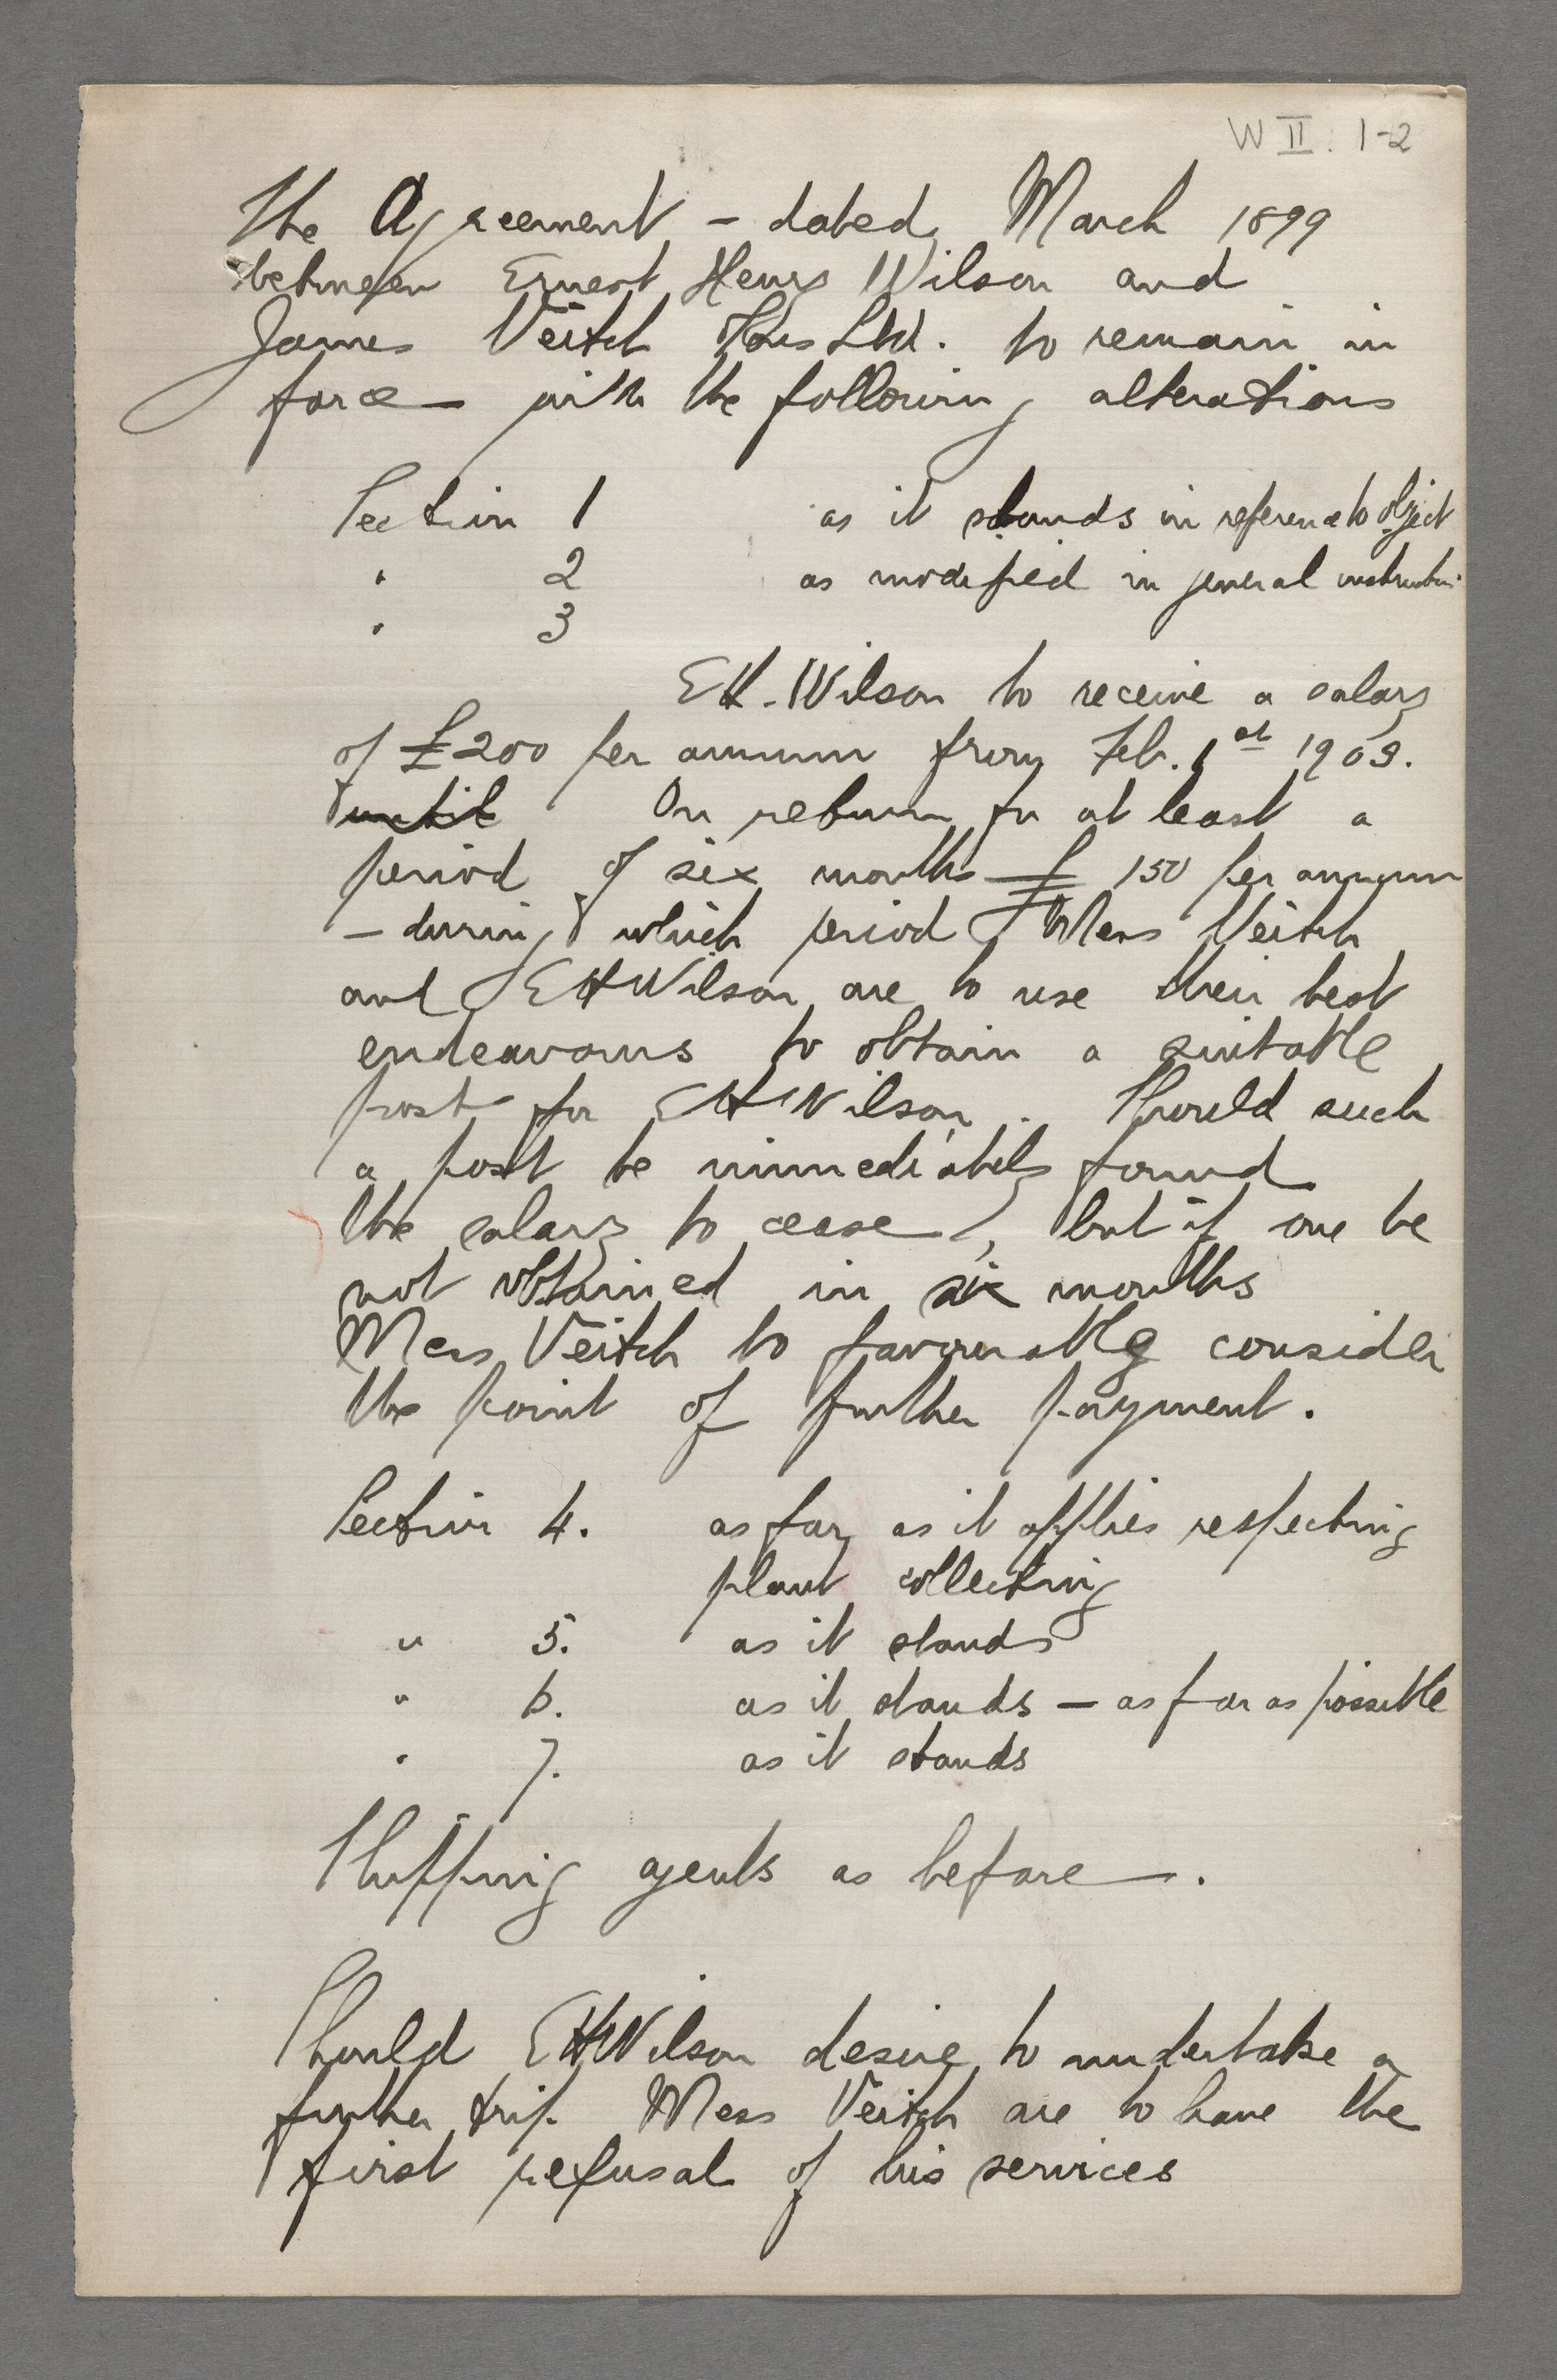 W II : 1-2
The Agreement - dated March 1899
between Ernest Henry Wilson and
James Veitch & Sons Ltd. to remain in
force with the following alterations
Section 1 as it stands in reference to object
" 2 as modified in general instructions
" 3
EH. Wilson to receive a salary
of £200 per annum from Feb. 1st 1903.
until On return for at least a
period of six months £ 150 per annum
- during which period Mess Veitch
and EHWilson are to use their best
endeavours to obtain a suitable
post for EHWilson. Should such
a post be immediately found
the salary to cease, but if one be
not obtained in six months
Mess Veitch to favourably consider
the point of further payment.
Section 4. as far as it applies respecting
plant collecting
" 5. as it stands
" 6. as it stands - as far as possible
" 7. as it stands
Shipping agents as before.
Should EHWilson desire to undertake a
further trip. Mess Veitch are to have the
first refusal of his services